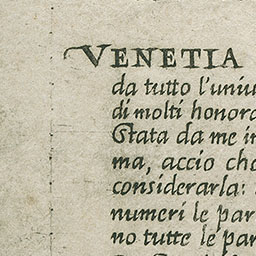 VENETIA
da tutto l'uniu
di molti honora
Stata da me in
ma, accio che
considerarla:
numeri le par
no tutte le par